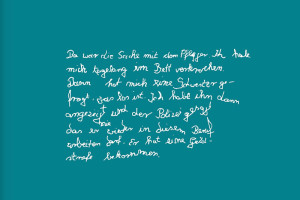 Da war die Sache mit dem Pfleger Ich habe
mich tagelang im Bett verkrochen.
Dann hat mich eine Schwester ge-
fragt. was los ist. Ich habe ihn dann
angezeigt und der Polizei gesagt
das er nie wieder in diesem Beruf
arbeiten darf. Er hat eine Geld-
strafe bekommen.